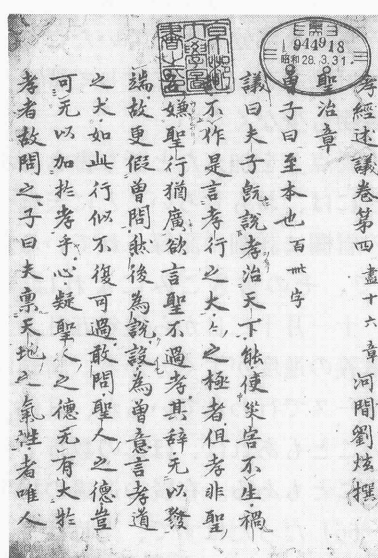 孝經述議卷第四 盡十六章 河間劉炫撰
聖治章
曾子曰至本也 百卌字
議曰夫子既說孝治天下能使災害不生禍
乱不作是言孝行之大々之極者但孝非聖
嫌聖行猶廣欲言聖不過孝其辞无以發
端故更假曽問然後為說設為曽意言孝道
之大如此行似不復可過敢問聖人之德豈
可无以加於孝乎心疑聖人之德无有大於
孝者故問之子曰夫禀天地之氣性者唯人
京都大學圖書之印
1944918
昭和28.3.31